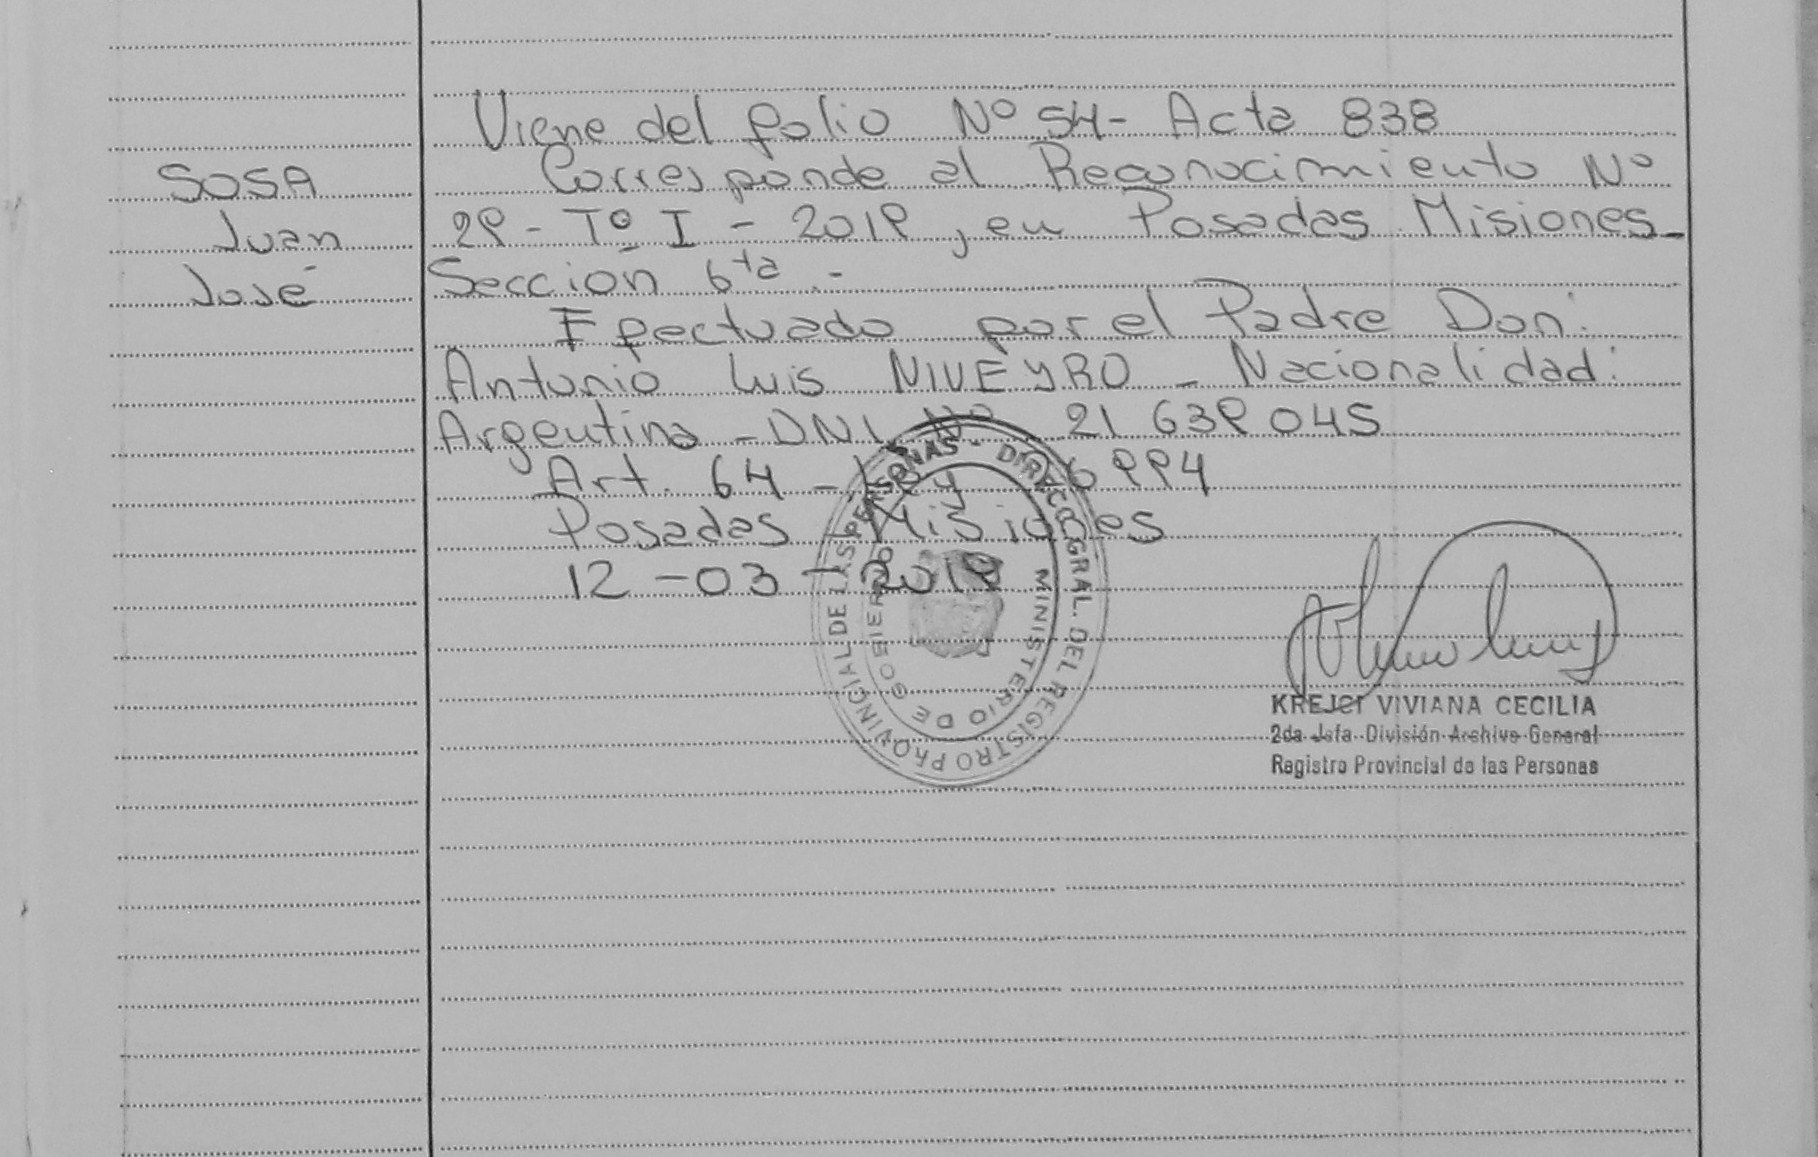 Viene del folio Nº 54- Acta 838
SOSA
Juan
José
Corresponde al Reconocimiento Nº
29 - Tº I - 2019, en Posadas Misiones
Sección 6ta.-
Efectuado por el Padre Don:
Antonio Luis NIVEYRO - Nacionalidad:
Argentina - DNI Nº 21 639 045
Art. 64 - Ley 26994
Posadas Misiones
12-03-2019
DIRECC. GRAL. DEL REGISTRO PROVINCIAL DE LAS PERSONAS -
MINISTERIO DE GOBIERNO
KREJCI VIVIANA CECILIA
2da Jefa División Archivo General
Registro Provincial de las Personas